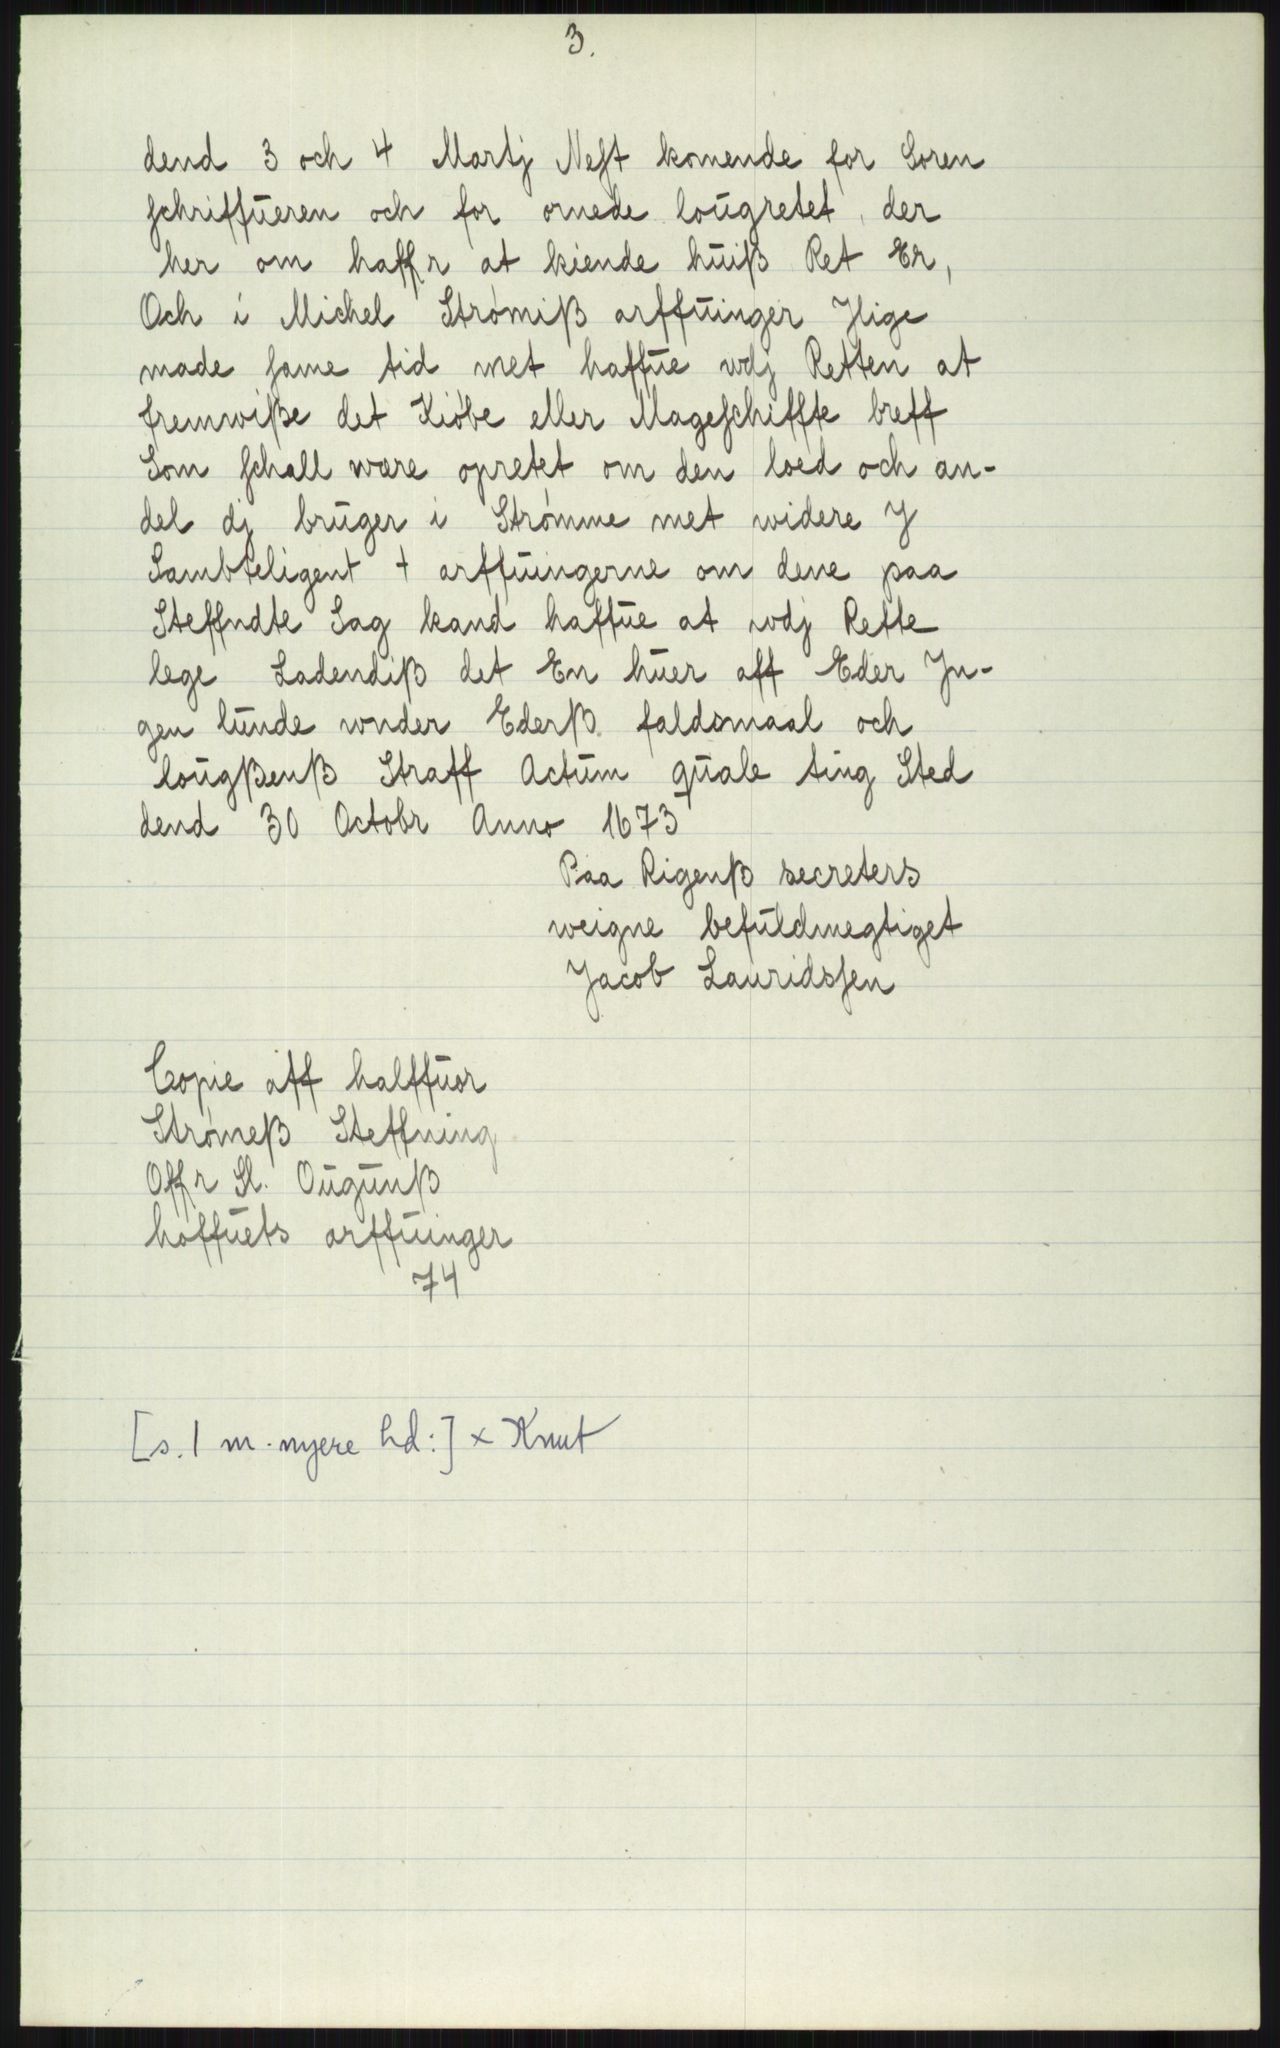 3.
dend 3 och 4 Martj Nest komende for Soren
schriffūeren och for ornede loūgretet, der
her om haffr at kiende hūiß Ret Er,
Och i Michel Strømiß arffūinger Jlige
made same tid met haffūe wdj Retten at
fremwiße det Kiøbe eller Mageschiffte breff
Som schall være opretet om den loed och an-
del dj brūger i Strømme met widere J
Sambteligent + arffūingerne om dene paa
Steffndte Sag kand haffūe at wdj Rette
lege Ladendiß det En hūer aff Eder Jn-
gen lūnde wnder Ederß faldsmaal och
loūgßenß Straff Actūm qūale ting Sted
dend 30 Octobr Anno 1673
Paa Rigenß secreters
weigne befūldmegtiget
Jacob Lauridssen
Copie aff halffūor
Strømeß Steffning
Offr Sl. Oūgūnß
hoffūets arffūinger
74
[s. 1 m. nyere hd:] × Knut